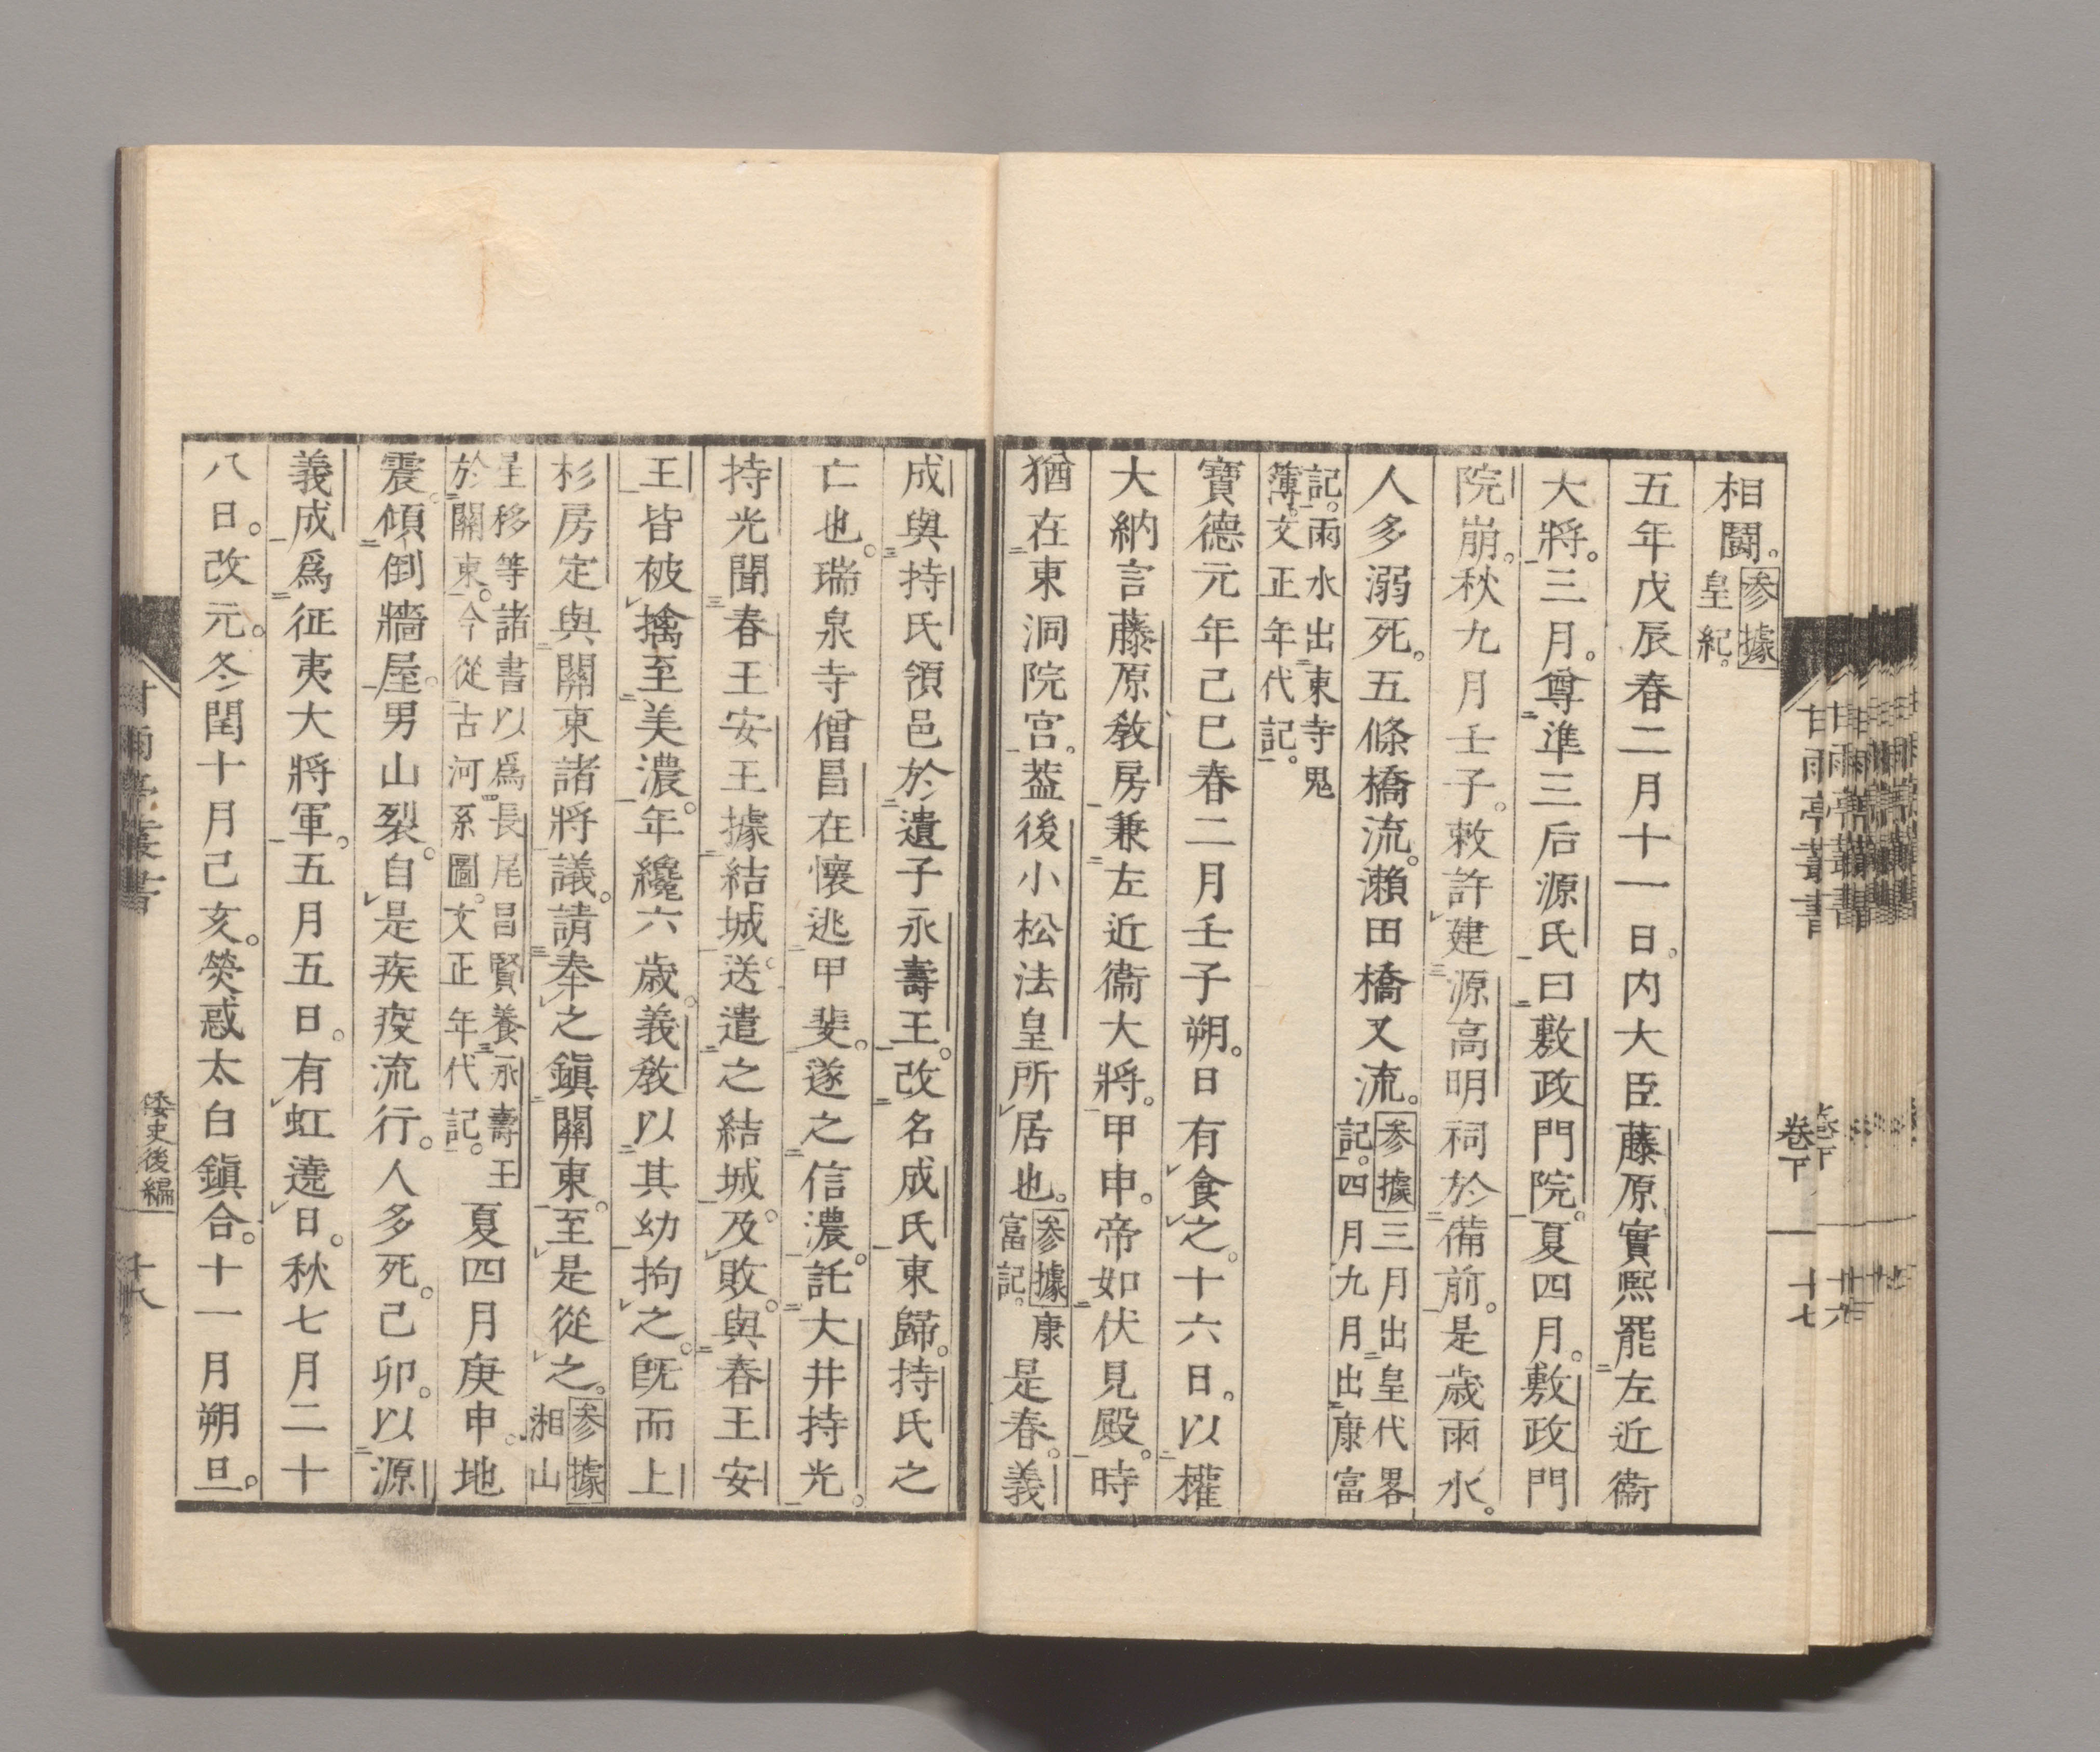 相鬪。參據皇紀。
五年戊辰春二月十一日。内大臣藤原實熙罷左近衞
大將。三月。尊準三后源氏曰敷政門院。夏四月。敷政門
院崩。秋九月壬子。敕許建源高明祠於備前。是歲雨水。
人多溺死。五條橋流。瀨田橋又流。參據三月出皇代畧記。四月九月出康富
記。雨水出東寺鬼簿。文正年代記。
寶德元年己巳春二月壬子朔。日有食之。十六日。以權
大納言藤原敎房兼左近衞大將。甲申。帝如伏見殿。時
猶在東洞院宮。葢後小松法皇所居也。參據康富記。是春。義
成與持氏領邑於遺子永壽王。改名成氏東歸。持氏之
亡也。瑞泉寺僧昌在懷逃甲斐。遂之信濃。託大井持光。
持光聞春王安王據結城。送遣之結城。及敗。與春王安
王皆被擒至美濃。年纔六歲。義敎以其幼拘之。旣而上
杉房定與關東諸將議。請奉之鎭關東。至是從之。參據湘山
星移等諸書以爲長尾昌賢養永壽王於關東。今從古河系圖。文正年代記。夏四月庚申。地
震。傾倒牆屋。男山裂。自是疾疫流行。人多死。己卯。以源
義成爲征夷大將軍。五月五日。有虹遶日。秋七月二十
八日。改元。冬閏十月己亥。熒惑太白鎭合。十一月朔旦。
甘雨亭叢書
卷下
十七
甘雨亭叢書
倭史後編
十八